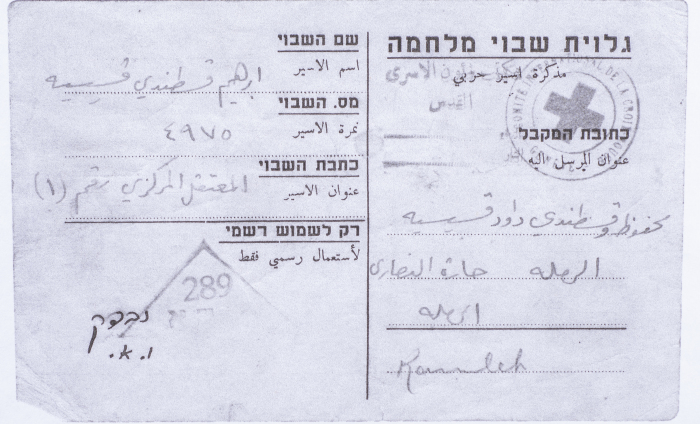 גלוית שבוי מלחמה
مذكرة اسير حربي
القدس
כתובת המקבל
عنوان المرسل اليه
محفوظ قسطندي داود قسيسيه
الرمله حارة النصارى
الرمله
Ramleh
שם השבוי
اسم الاسير
ابرهيم قسطندي قسيسيه
מס. השבוי
نمرة الاسير
٤٩٧٥
כתבת השבוי
عنوان الاسير
المعتقل المركزي رقم (١)
רק לשמוש רשמי
لأستعمال رسمي فقط
289
נבדק
ו.א.